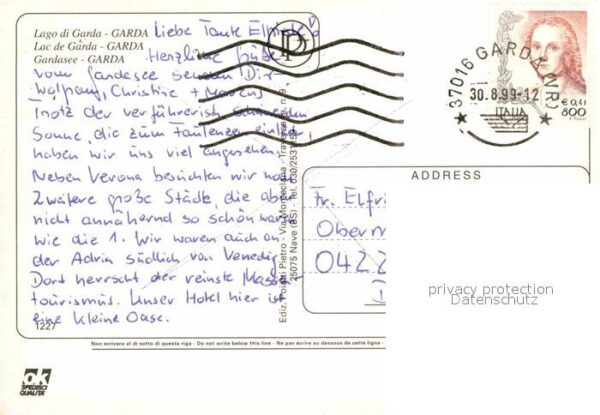 Lago di Garda - GARDA
Lac de Garda - GARDA
Gardasee - GARDA
Liebe Tante Elfriede
Herzliche Grüße
vom Gardasee senden Dir
Wolfgang, Christine + Marens
Trotz der verführerisch scheinenden
Sonne, die zum faulenzen einlädt,
haben wir uns viel angesehen.
Neben Verona besichten wir noch
zweitere große Städte, die aber
nicht annähernd so schön waren
wie die 1. Wir waren auch an
der Adria südlich von Venedig
Dort herrscht der reinste Massen
tourismus. Unser Hotel hier ist
eine kleine Oase.
1227
ok
SPEDISCI
QUALITA'
Ediz. Poletti Pietro - Via
25075 Nave (BS) - Tel. 030/2531
37016 GARDA (VR)
30.8.99-12
ITALIA
€ 0,41
800
ADDRESS
Fr. Elfri
Obern
0422
D
privacy protection
Datenschutz
Non scrivere al di sotto di questa riga - Do not write below this line - Ne pas écrire au dessous de cette ligne